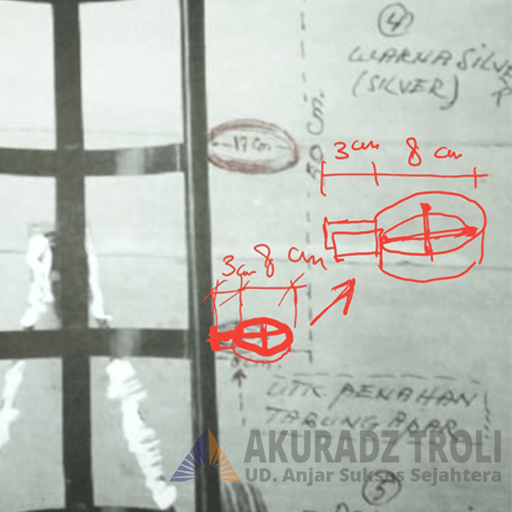 4
WARNA SILVE
(SILVER)
17 Cm
50 Cm.
3 cm 8 cm
3 cm 8 cm
UTK PENAHAN
TABUNG APAR
AKURADZ TROLI
UD. Anjar Sukses Sejahtera
5